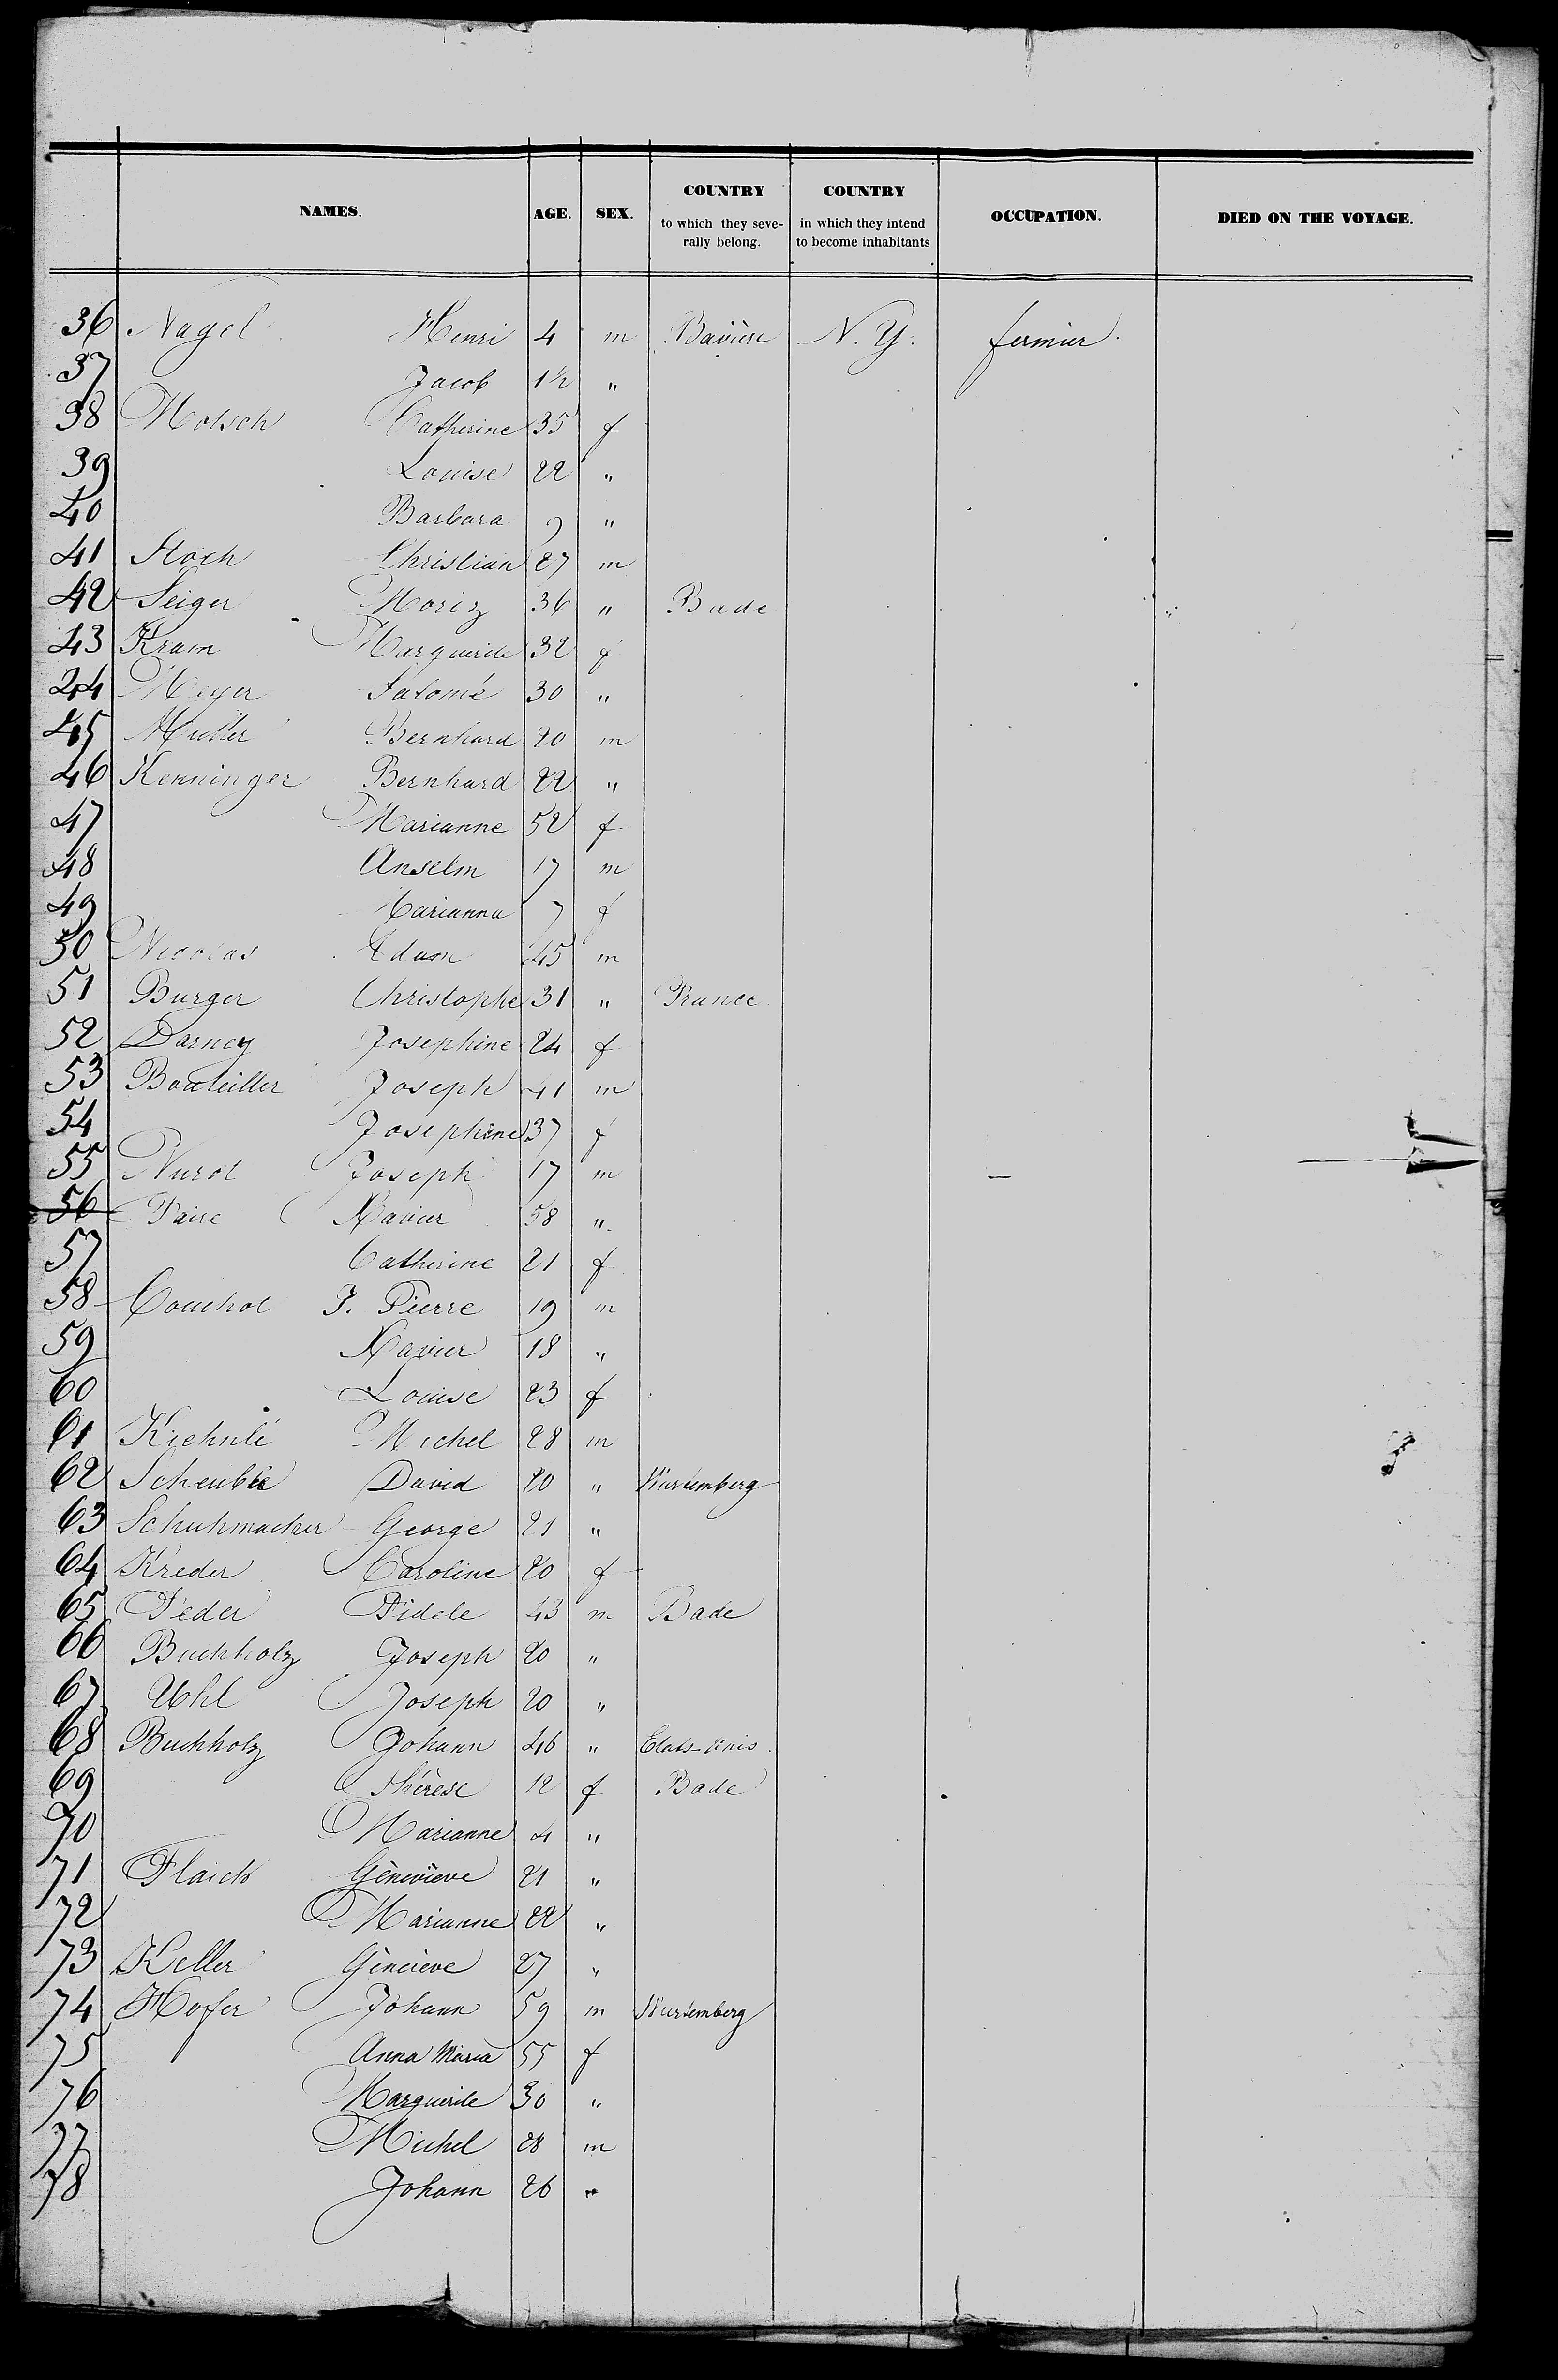 NAMES. AGE. SEX. COUNTRY to which they seve- rally belong. COUNTRY in which they intend to become inhabitants OCCUPATION. DIED ON THE VOYAGE.
36 Nagel Henri 4 m Bavière N. Y. fermier.
37 Jacob 1½ "
38 Motsch Catherine 35 f
39 Louise 22 "
40 Barbara 9 "
41 Stoch Christian 27 m
42 Seiger Moriz 36 " Bade
43 Kram Marguerite 32 f
44 Meyer Salomé 30 "
45 Muller Bernhard 20 m
46 Kenninger Bernhard 22 "
47 Marianne 52 f
48 Anselm 17 m
49 Marianna 7 f
50 Nicolas Adam 45 m
51 Burger Christophe 31 " France
52 Darney Josephine 24 f
53 Bouteiller Joseph 41 m
54 Josephine 37 f
55 Nurot Joseph 17 m
56 Faire Xavier 58 "
57 Catherine 21 f
58 Couchot J. Pierre 19 m
59 Xavier 18 "
60 Louise 23 f
61 Kiehnlé Michel 28 m
62 David 20 " Wurtemberg
63 Schuhmacher George 21 "
64 Kreder Caroline 20 f
65 Feder Fidele 43 m Bade
66 Buchholz Joseph 20 "
67 Uhl Joseph 20 "
68 Buchholz Johann 46 " Etats-Unis
69 Thérese 12 f Bade
70 Marianne 4 "
71 Flaick Géneviève 21 "
72 Marianne 22 "
73 Keller Génevieve 27 "
74 Hofer Johann 59 m Wurtemberg
75 Anna Maria 55 f
76 Marguerite 30 "
77 Michel 28 m
78 Johann 26 "